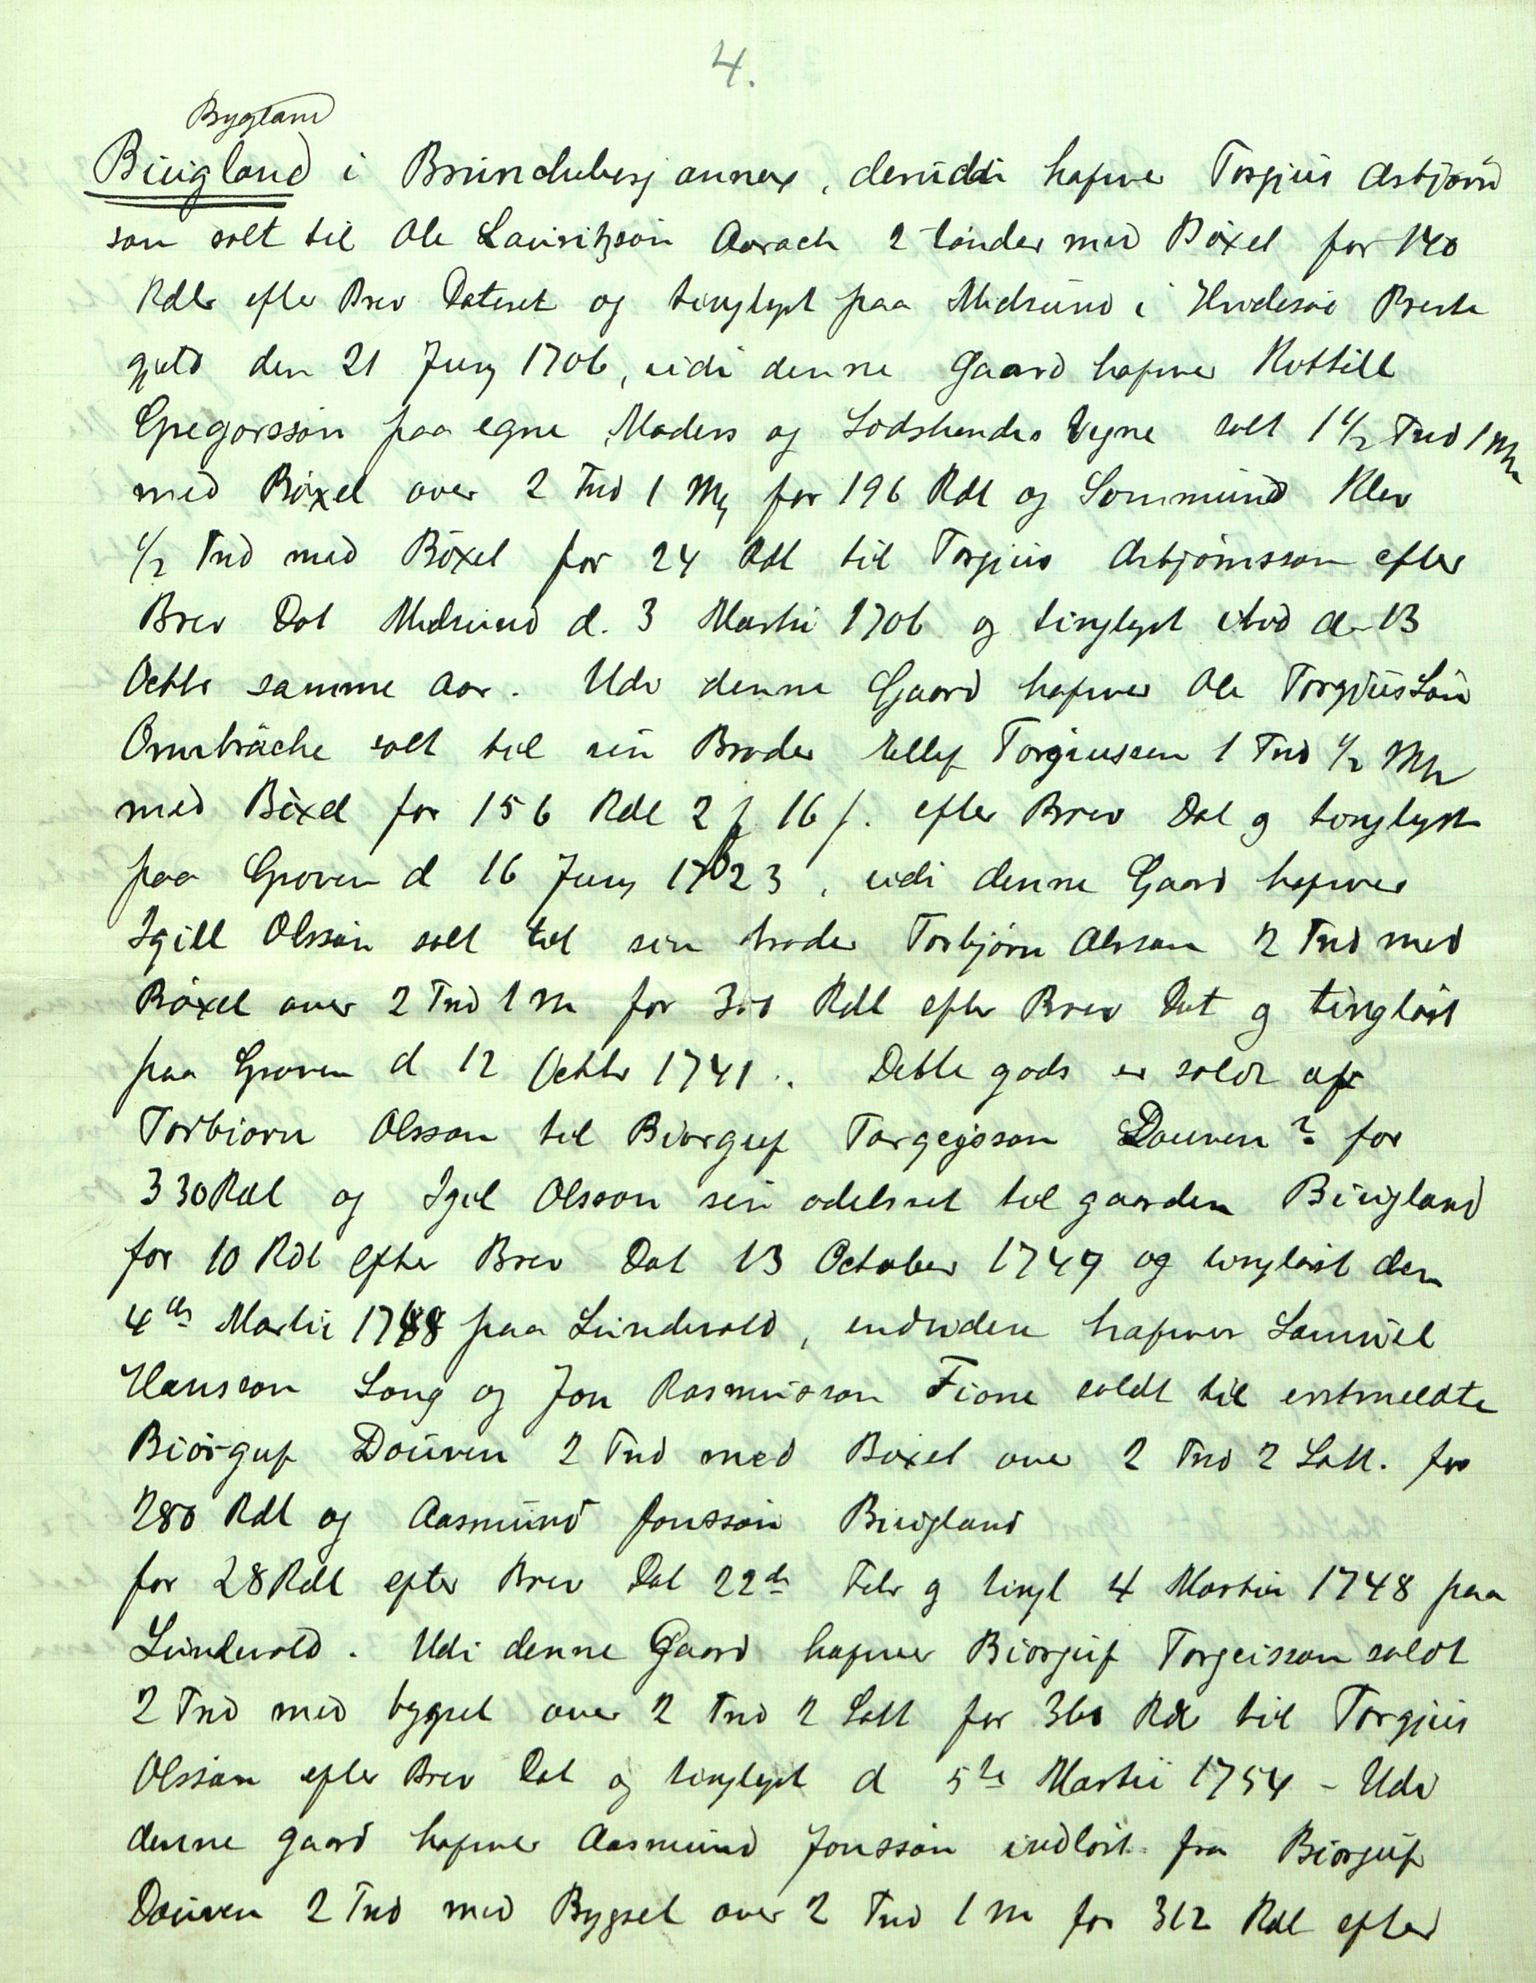 4.
Bygland
Biugland i Bruncheberg annex, deruddi hafver Torgius Asbjörn
son solt til Ole Lauritzsön Aarach 2 tönder med Böxel for 140
Rdlr efter Brev Dateret og tinglyst paa Midsund i Hvidesöe Preste
gjeld den 21 Juny 1706, udi denne Gaard hafver Kettill
Gregorsson paa egne Moders og Södskendes Vegne solt 1 1/2 Tnd 1 Mk
med Böxel over 2 Tnd 1 Mk for 196 Rdl og Sommund Klev
1/2 Tnd med Böxel for 24 Rdl til Torgius Asbjörnsson efter
Brev Dat Midsund d. 3 Martii 1706 og tinglyst istd d 13
Octbr samme Aar. Udi denne Gaard hafver Ole TorgiusSön
Ormbräche solt til sin Broder Ellef Torgiussen 1 Tnd 1/2 Mk
med Böxel for 156 Rdl 2 f 16 f. efter Brev Dat g tinglyst
paa Groven d 16 Juny 1723, udi denne Gaard hafver
Igill Olssön solt til sin broder Torbjörn Olsson 2 Tnd med
Böxel over 2 Tnd 1 M for 300 Rdl efter Brev Dat g tinglöst
paa Groven d 12 Octbr 1741. Dette gods er soldt af
Torbiorn Olsson til Biorguf Torgeisson Douven ? for
330 Rdl og Igil Olsson sin odelsret til gaarden Biugland
for 10 Rdl efter Brev Dat 13 October 1749 og tinglöst den
4de Martii 1748 paa Lundevold, endvidere hafver Samuel
Hansson Lang og Jon Rasmusson Fione soldt til erstmeldte
Biörguf Douven 2 Tnd med Boxel over 2 Tnd 2 Sott. for
280 Rdl og Aasmund Jonssön Biugland
for 28 Rdl efter Brev Dat 22de Febr g tingl 4 Martii 1748 paa
Lundevold. Udi denne Gaard hafver Biorguf Torgeisson soldt
2 Tnd med bygsel over 2 Tnd 2 Sott for 360 Rdl til Torgius
Olssön efter Brev Dat og tinglyst d 5te Martii 1754 - Udi
denne gaard hafver Aasmund Jonssön indlöst fra Biorguf
Douven 2 Tnd med Bygsel over 2 Tnd 1 M for 312 Rdl efter